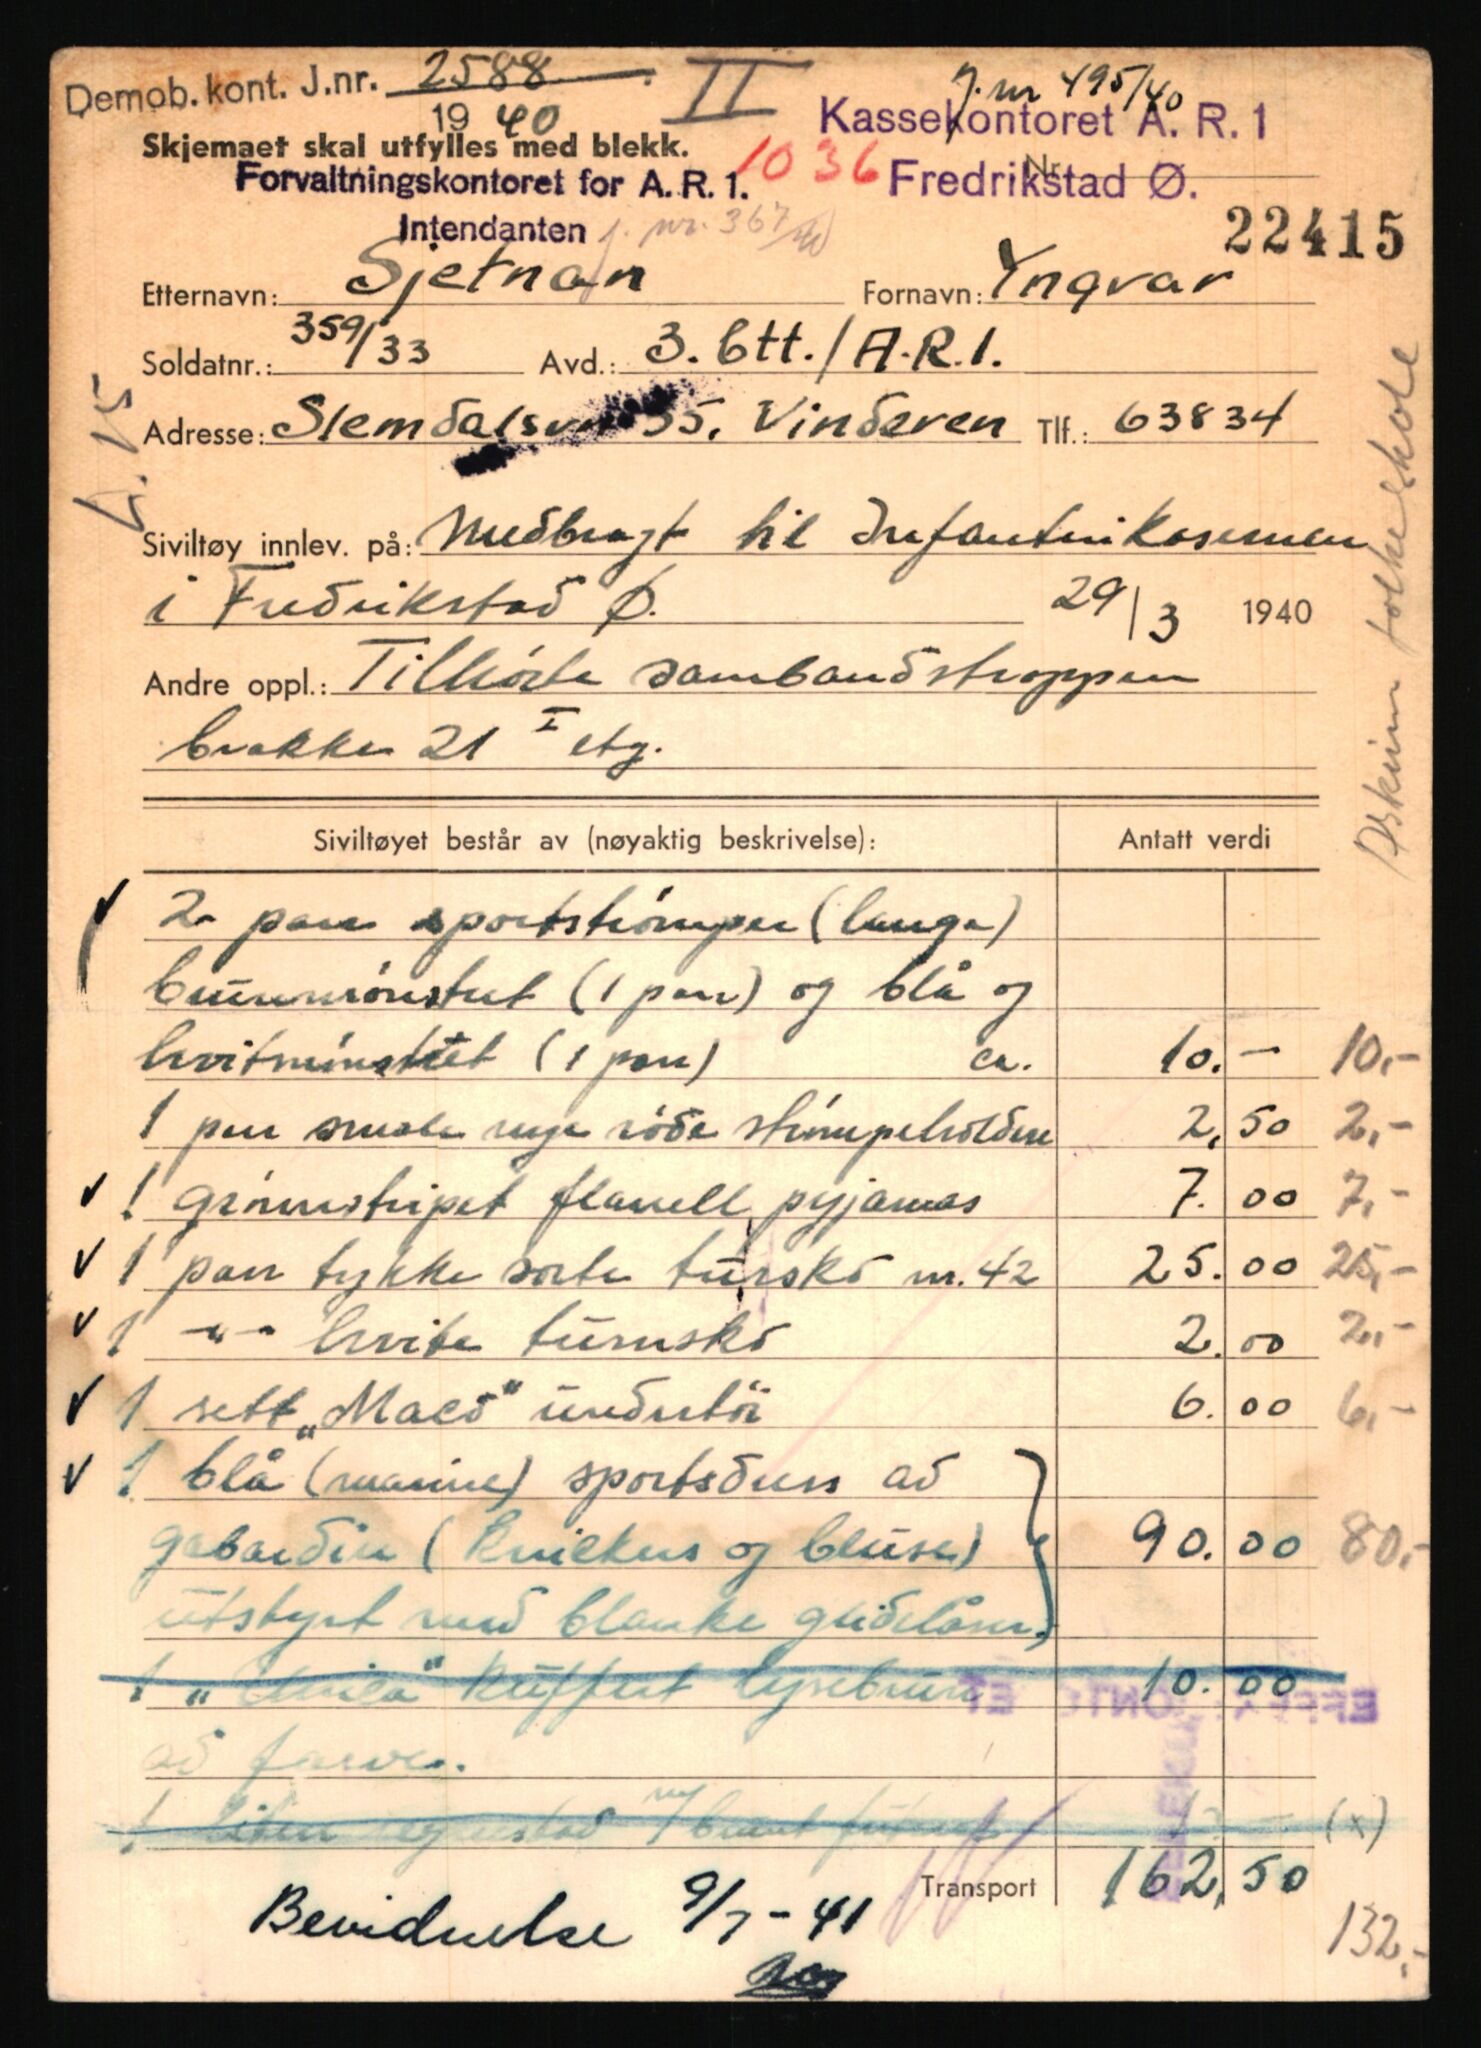 Demob. kont. J.nr. 2588
1940
II
J. nr 495/40
Kassekontoret A. R. 1
Skjemaet skal utfylles med blekk.
1036
Nr.
Forvaltningskontoret for A. R. 1.
Fredrikstad Ø.
Intendanten j. nr. 367/40
22415
Etternavn: Sjetnan Fornavn: Yngvar
Soldatnr.: 359/33 Avd.: 3. btt. / A.R.1.
Adresse: Slemdalsvn 55. Vinderen Tlf.: 63834
Siviltøy innlev. på: Medbragt til Infanterikasernen
i Fredrikstad Ø. 29/3 1940
Andre oppl.: Tilhørte sambandstroppen
brakke 21 I etg.
Askim folkeskole
Siviltøyet består av (nøyaktig beskrivelse): Antatt verdi
2 par sportstrømper (lange)
brunmønstret (1 par) og blå og
hvitmønstret (1 par) ca. 10.- 10,-
1 par smale nye røde strømpeholdere 2,50 2,-
1 grønnstripet flanell pyjamas 7.00 7,-
1 par tykke sorte turskó nr. 42 25.00 25,-
1 -"- hvite turnsko 2.00 2,-
1 sett „Maco" undertöi 6.00 6,-
1 blå (marine) sportsdress ad
gabardin (knickers og bluse) 90.00 80,-
utstyrt med blanke glidelåser.
1 kuffert lysebrun 10.00
ad farve.
EFFEKTKONTORET
(x)
Transport 162,50
132,-
Bevidnelse 9/7-41